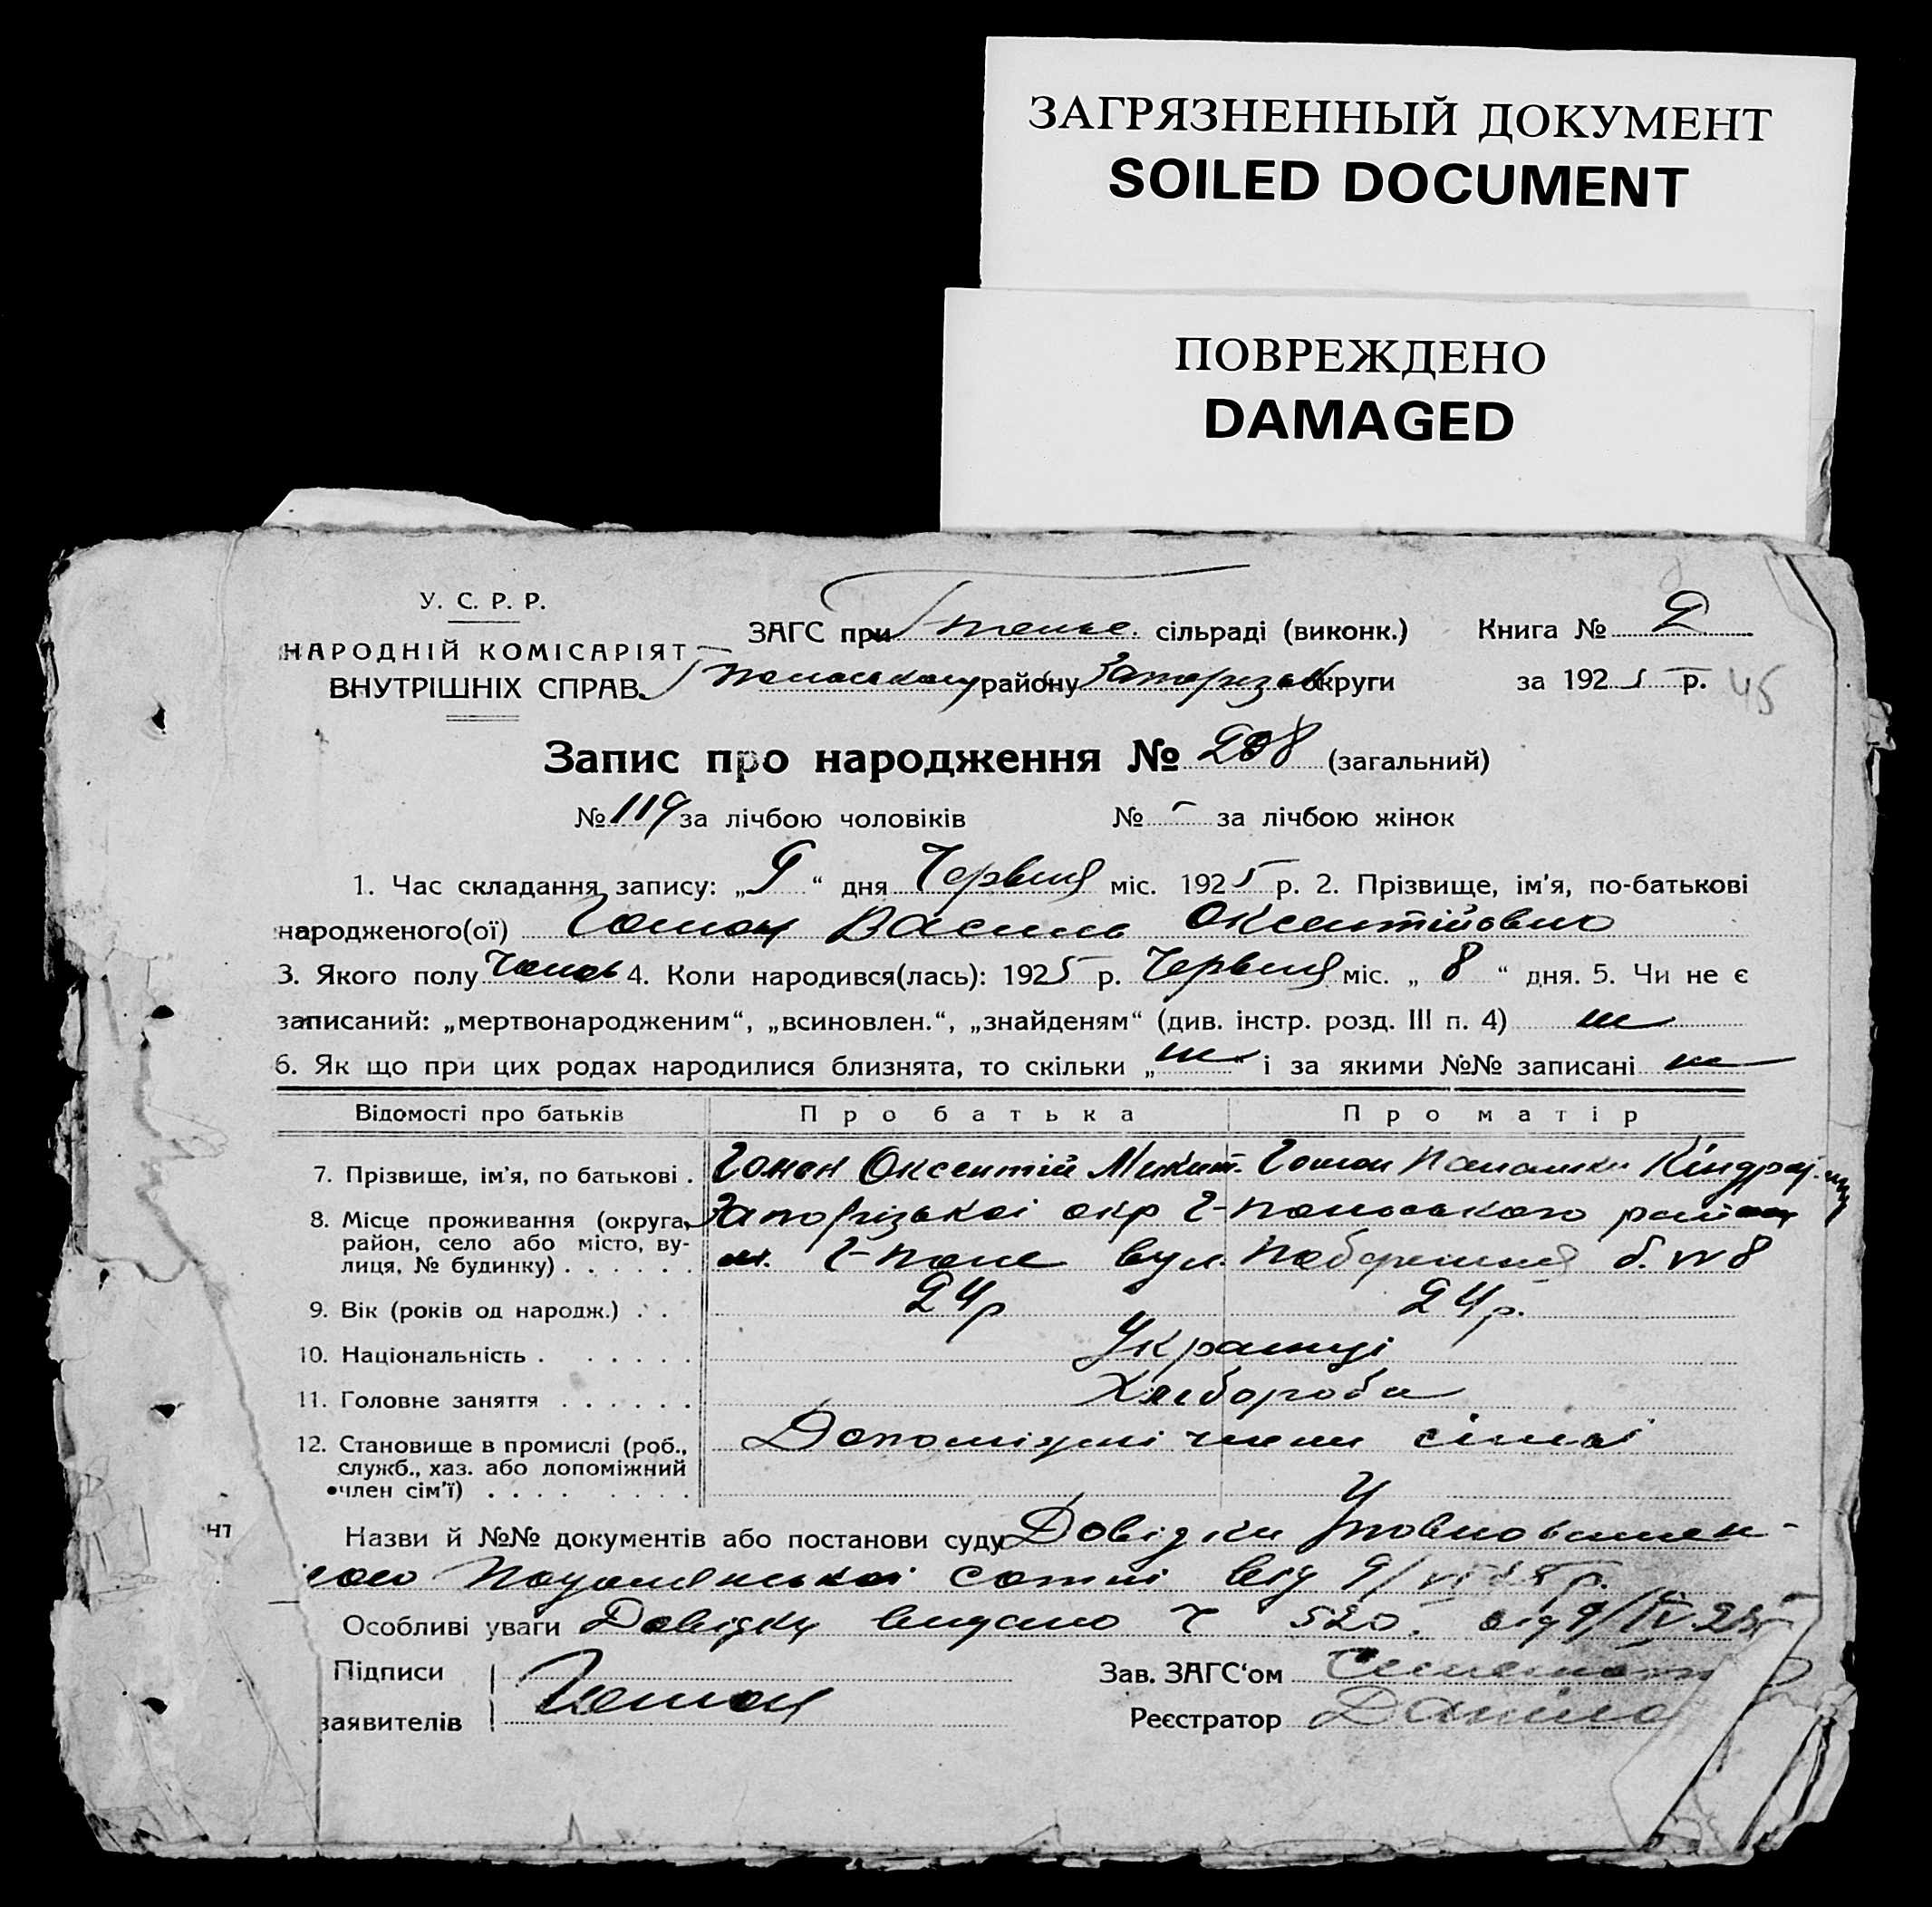 ЗАГРЯЗНЕННЫЙ ДОКУМЕНТ
SOILED DOCUMENT
ПОВРЕЖДЕНО
DAMAGED
У. С. Р. Р.
НАРОДНІЙ КОМІСАРІЯТ
ВНУТРІШНІХ СПРАВ
ЗАГС при сільраді (виконк.) Книга № 2
району Запорізьк округи за 1925 р. 45
Запис про народження № 208 (загальний)
№ 119 за лічбою чоловіків № - за лічбою жінок
1. Час складання запису: „9“ дня Червня міс. 1925 р. 2. Прізвище, ім'я, по-батькові
народженого(ої) Гоман Василь Оксентійович
3. Якого полу Чолов 4. Коли народився(лась): 1925 р. Червня міс. „8“ дня. 5. Чи не є
записаний: „мертвонародженим“, „всиновлен.“, „знайденям“ (див. інстр. розд. III п. 4) ні
6. Як що при цих родах народилися близнята, то скільки „ні“ і за якими №№ записані ні
Відомості про батьків Про батька Про матір
7. Прізвище, ім'я, по батькові . Гоман Оксентій Микит. Гоман Кіндрат.
8. Місце проживання (округа, район, село або місто, вулиця, № будинку) . . . . . . Запорізької окр Г-Польського району
м. Г-Поле вул. б. № 8
9. Вік (років од народж.) . . 24 р 24 р.
10. Національність . . . . . . Українці
11. Головне заняття . . . . . . Хлібороби
12. Становище в промислі (роб., служб., хаз. або допоміжний член сім'ї) . . . . Допоміжні члени сімї
Назви й №№ документів або постанови суду Довідки Уповноважен-
ого сотні від 9/VI 25 р.
Особливі уваги Довідку видано Ч 520. від 9/IV 25
Підписи
заявителів Гоман
Зав. ЗАГС'ом
Реєстратор